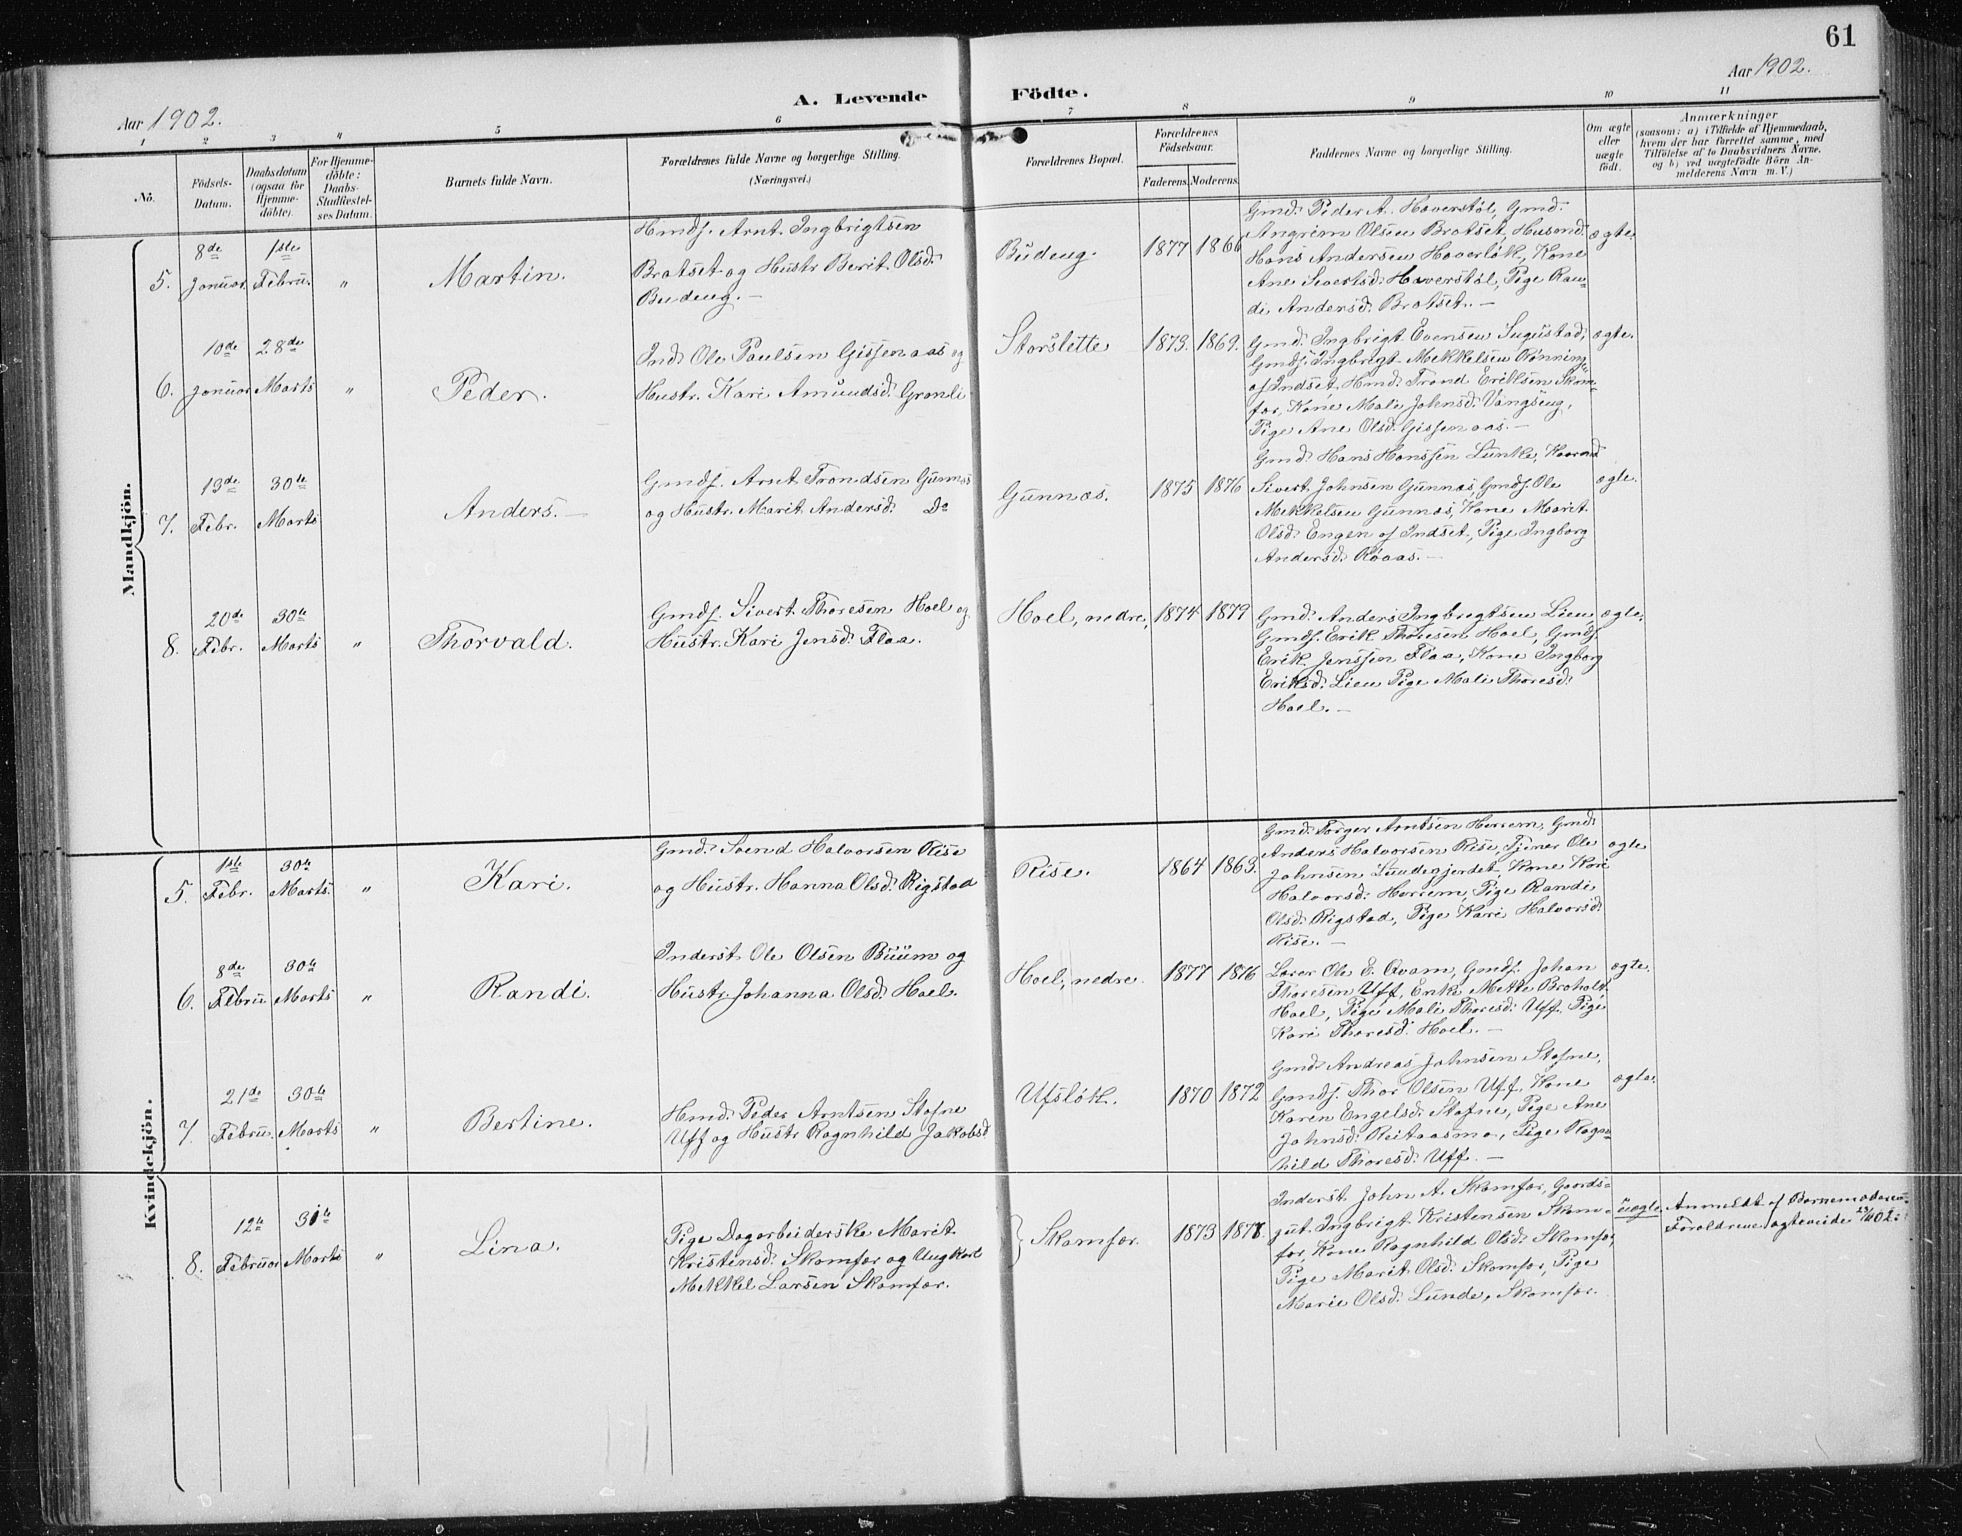 61
Aar 1902.
Aar 1902.
A. Levende Födte.
1 2 3 4 5 6 7 8 9 10 11
No.
Födsels-Datum.
Daabsdatum (ogsaa for Hjemme-döbte).
For Hjemme-döbte: Daabs-Stadfæstel-ses Datum.
Barnets fulde Navn.
Forældrenes fulde Navne og borgerlige Stilling.
(Næringsvei.)
Forældrenes Bopæl.
Forældrenes Födselsaar.
Faderens. Moderens.
Faddernes Navne og borgerlige Stilling.
Om ægte eller uægte födt.
Anmærkninger
(saasom: a) i Tilfælde af Hjemmedaab,
hvem der har forrettet samme, med
Tilföielse af to Daabsvidners Navne.
og b) ved uægtefödte Börn An-
melderens Navn m. V.)
Mandkjön.
5. 8de Januar. 1ste Febru. " Martin.
Hmdf. Arnt Ingbrigtsen
Bratset og Hustr Berit Olsd.
Budeng. —
Budeng. 1877 1866
Gmd. Peder A. Haverstöl, Gmd.
Angrim Olsen Bratset, Husmd.
Hans Andersen Haverløk, Kone
Ane Sivertsd. Haverstöl, Pige Ran-
di Andersd. Bratset. —
ægte.
6. 10de Januar 28de Marts " Peder.
Ind. Ole Paulsen Gissenaas og
Hustr. Kari Amundsd. Grønli
Storslette 1873. 1869.
Gmd. Ingbrigt Evensen
Gmdf. Ingbrigt Mekkelsen Rønning
af Indset, Hmd. Trond Eriksen Skam-
far, Kone Mali Johnsd. Vangseng,
Pige Ane Olsd. Gissenaas. —
ægte.
7. 13de Febr. 30te Marts Anders. —
Gmdf. Arnt Trondsen Gunnæs
og Hustr. Marit Andersd. Do
Gunnæs. 1875 1876
Gmd. Hans Hanssen Lunke,
Sivert Johnsen Gunnæs, Gmdf. Ole
Mekkelsen Gunnæs, Kone Marit
Olsd. Engen af Indset, Pige Ingborg
Andersd. Røaas. —
ægte.
8. 20de Febr. 30te Marts " Thorvald.
Gmdf. Sivert Thoresen Hoel og
Hustr. Kari Jensd. Flaa.
Hoel, nedre, 1874 1879
Gmd. Anders Ingbrigtsen Lien,
Gmdf. Erik Thoresen Hoel, Gmdf.
Erik Jenssen Flaa, Kone Ingborg
Eriksd. Lien Pige Mali Thoresd.
Hoel. —
ægte.
Kvindekjön.
5. 1ste Febr. 30te Marts. " Kari.
Gmd. Svend Halvorsen Rise
og Hustr. Hanna Olsd. Rigstad
Rise. 1864 1863.
Gmd. Torger Arntsen Herrem, Gmd.
Anders Halvorsen Rise, Tjener Ole
Johnsen Lundegjerdet, Kone Kari
Halvorsd. Herrem, Pige Randi
Olsd. Rigstad, Pige Kari Halvorsd.
Rise. —
ægte
6. 8de Febru 30te Marts " Randi.
Inderst Ole Olsen Buum og
Hustr. Johanna Olsd. Hoel.
Hoel, nedre. 1877 1876
Lærer Ole E. Qvam, Gmdf. Johan
Thoresen Uff, Enke Mette Broholt
Hoel, Pige Mali Thoresd. Uff. Pige
Kari Thoresd. Hoel. —
ægte.
7. 21de Febru. 30te Marts " Bertine.
Hmd. Peder Arntsen Stofne
Uff og Hustr Ragnhild Jakobsd
Ufsløk. 1870 1872
Gmd. Andreas Johnsen Stofne,
Gmdf. Thor Olsen Uff, Kone
Karen Engelsd. Stofne, Pige Ane
Johnsd. Reitaasmo, Pige Ragn-
hild Thoresd. Uff. —
ægte.
8. 12te Februar 31te Marts " Lina.
Pige Dagarbeiderske Marit
Kristensd. Skamfar og Ungkarl
Mekkel Larsen Skamfar.
Skamfar. 1873 1878.
Inderst John A. Skamfar, Gaards-
gut Ingbrigt Kristensen Skam-
far, Kone Ragnhild Olsd. Skamfar,
Pige Marit Olsd. Skamfar, Pige
Marie Olsd. Lunde, Skamfar.
uægte.
Anmeldt af Barnemoderen.
Forældrene ægteviede